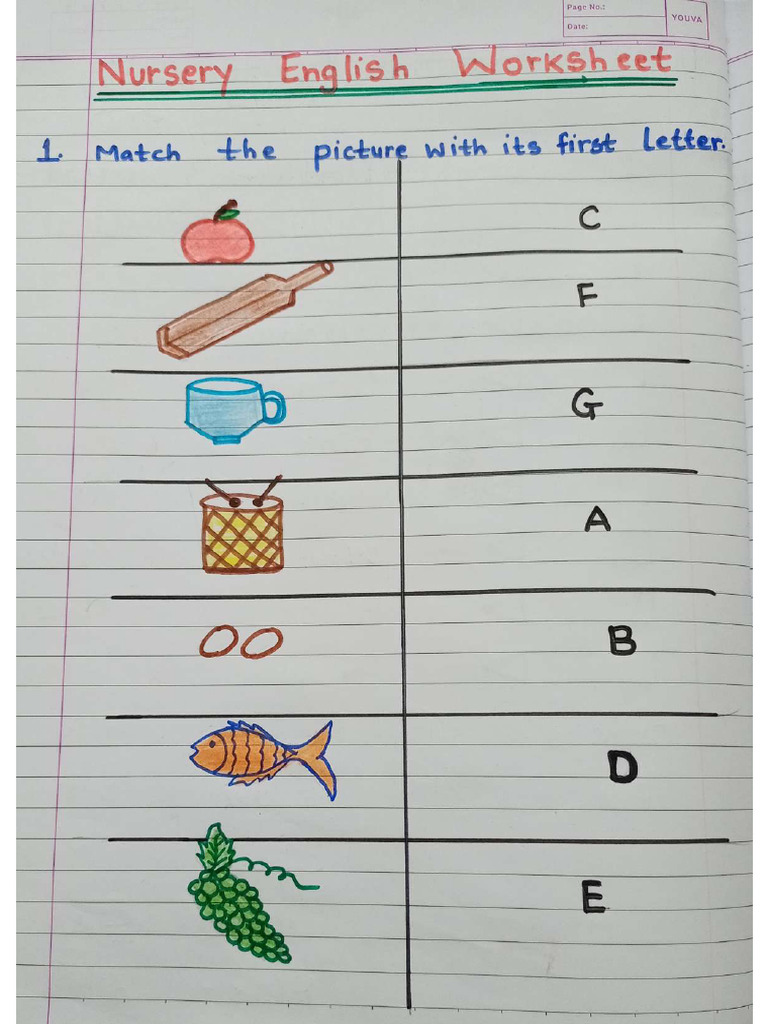 Page No.:
Date:
YOUVA
Nursery English Worksheet
1. Match the picture with its first letter.
C
F
G
A
B
D
E